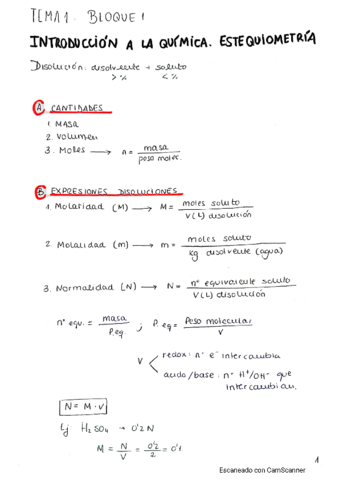 TEMA 1. BLOQUE 1
INTRODUCCIÓN A LA QUÍMICA. ESTEQUIOMETRÍA
Disolución: disolvente + soluto
> % < %
A. CANTIDADES
1. MASA
2. Volumen
3. Moles → n = masa / peso molec.
B. EXPRESIONES DISOLUCIONES
1. Molaridad (M) → M = moles soluto / V(L) disolución
2. Molalidad (m) → m = moles soluto / kg disolvente (agua)
3. Normalidad (N) → N = nº equivalente soluto / V(L) disolución
nº equ. = masa / P.eq ; P.eq = Peso molecular / V
V < redox: nº e⁻ intercambia
ácido/base: nº H⁺/OH⁻ que
intercambian.
N = M · V
Ej H₂SO₄ → 0'2 N
M = N / V = 0'2 / 2 = 0'1.
1
Escaneado con CamScanner